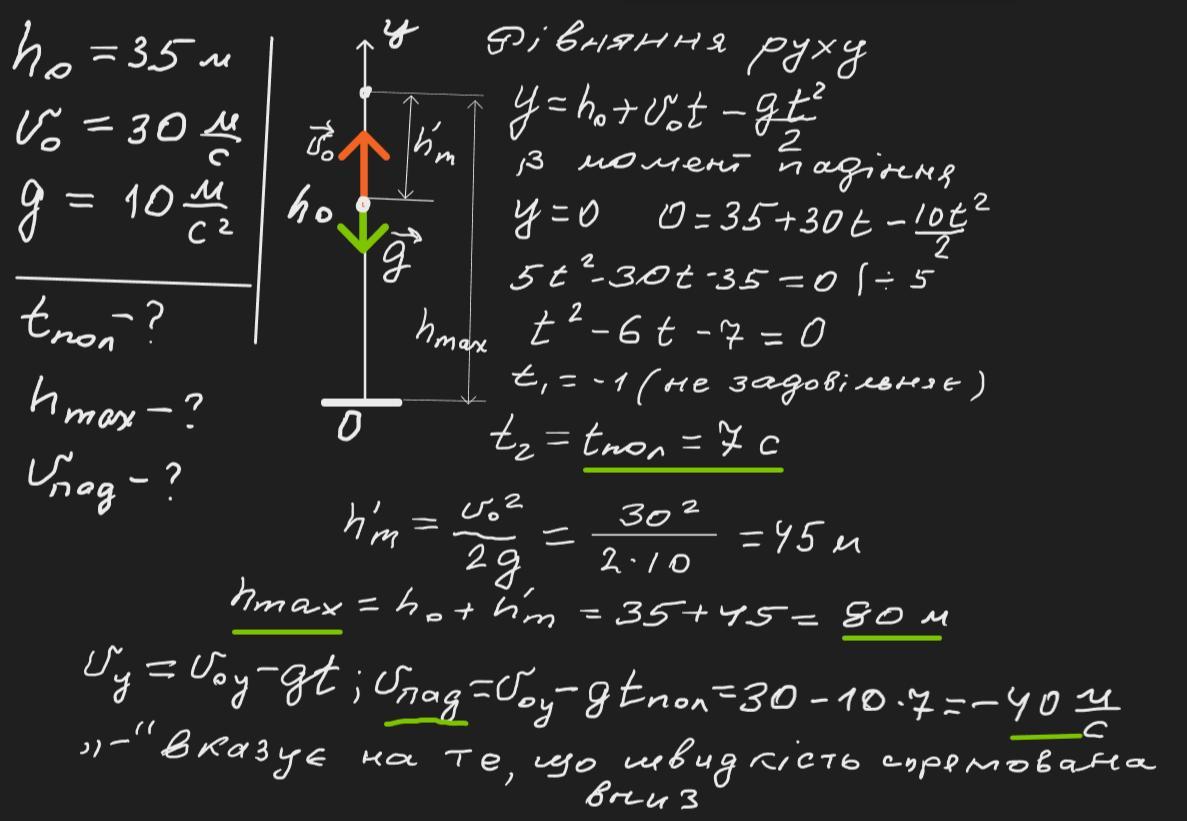 h₀ = 35 м
v₀ = 30 м/с
g = 10 м/с²
tпол - ?
hmax - ?
vпад - ?
y
v⃗₀
h'm
h₀
g⃗
hmax
0
Рівняння руху
y = h₀ + v₀t - gt²/2
В момент падіння
y = 0 0 = 35 + 30t - 10t²/2
5t² - 30t - 35 = 0 | ÷ 5
t² - 6t - 7 = 0
t₁ = -1 (не задовільняє)
t₂ = tпол = 7 с
h'm = v₀²/2g = 30²/2·10 = 45 м
hmax = h₀ + h'm = 35 + 45 = 80 м
vy = v₀y - gt; vпад = v₀y - gtпол = 30 - 10·7 = -40 м/с
„-“ вказує на те, що швидкість спрямована
вниз